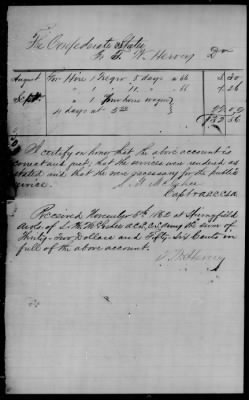 The Confederate States
To T. W. Hervey Dr
August For Hire 1 Negro 5 days a 66 3.30
Sept. " " 1 " 11 " " 66 7.26
" " 1 Four horse wagon
4 days at 5.50 22.00
$32.56
I certify on honor that the above account is
correct and just; that the services were rendered as
stated and that they were necessary for the public
service.
Capt & A.C.S.
Received November 5th 1862 at Springfield
of A.C.S. C.S. Army the sum of
Thirty-Two Dollars and Fifty-Six Cents in
full of the above account.
T. W. Hervey